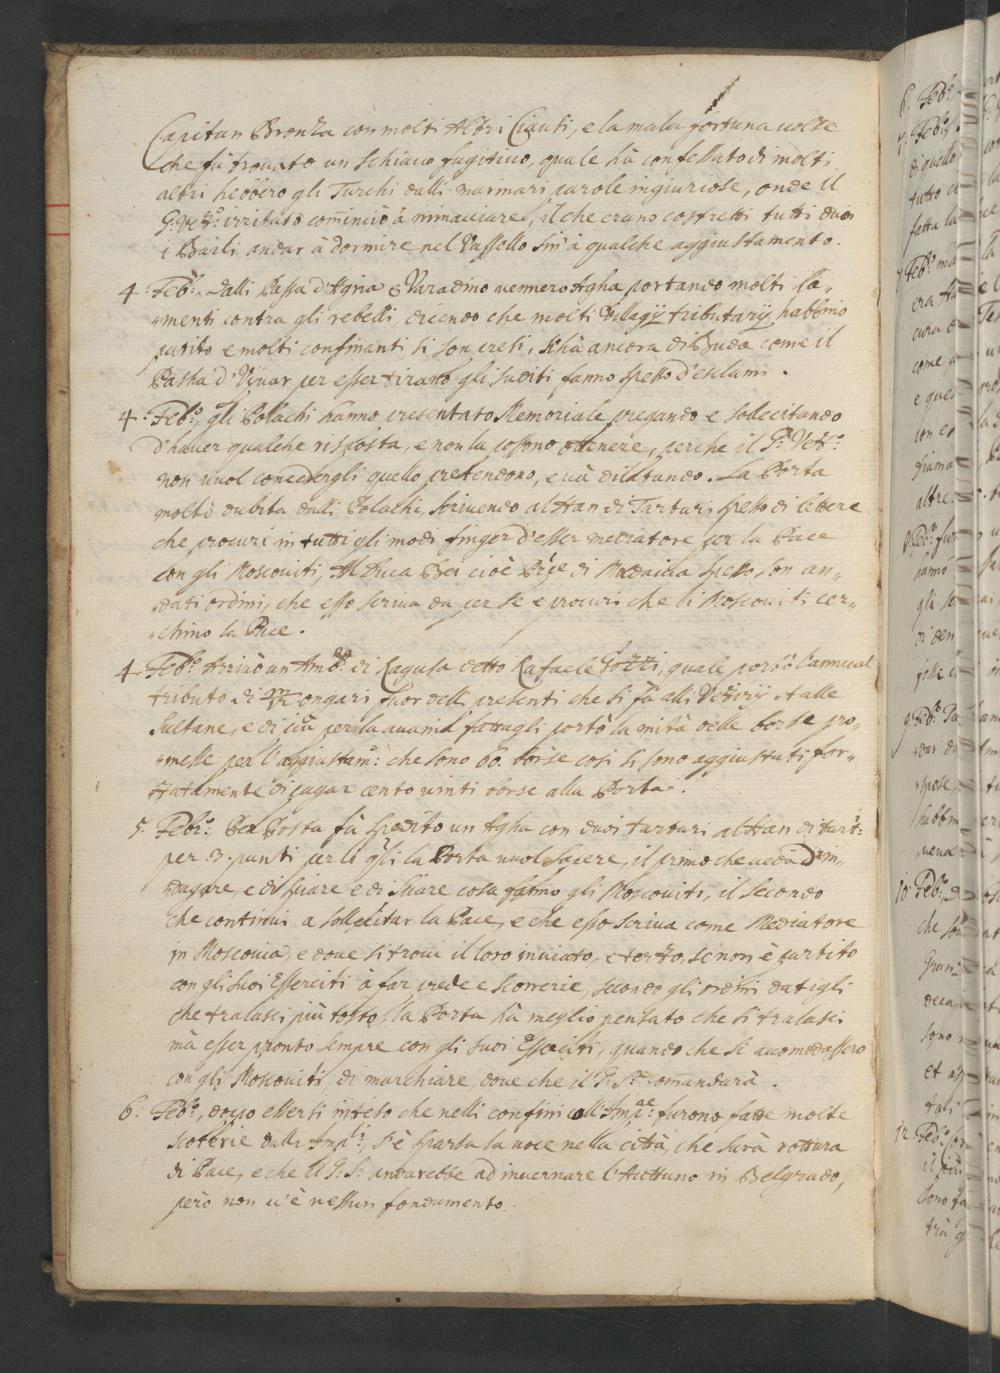 Capitan Bronza con molti Altri Ciauti, e la mala fortuna uolse
che fù trouato un schiauo fugitiuo, quale hà confessato di molti
altri hebbero gli Turchi dalli marinari parole ingiuriose, onde il
G: Vez:ro irritato cominciò à minacciare, il che erano costretti tutti duoi
i Baili andar à dormire nel Vassello sin' à qualche aggiustamento.
4 Feb:o Dalli Bassa d'Agria e Varadino uennero Agha portando molti la„
„menti contra gli rebelli, dicendo che molti Villagij tributarij habbino
patito e molti confinanti si son resi, Si hà ancora di Buda come il
Basha d'Viuar per esser tirano gli suditi fanno spesso d'esclami.
4. Feb:o gli Polachi hanno presentato Memoriale pregando e sollecitando
d'hauer qualche risposta, e non la possono ottenere, perche il G: Vez:o
non uuol concedergli quello pretendono, e uà dilatando. La Porta
molto dubita dalli Polachi, scriuendo al Han di Tartari spesso di lettere
che procuri in tutti gli modi finger d'esser mediatore per la Pace
con gli Moscouiti, Al Duca Bei cioè Pñpe di Moldauia spesso son an„
„dati ordini, che esso scriua da per se e procuri che li Moscouiti cer„
„chino la Pace.
4 Feb:o Arriuò un Amb:r di Ragusa detto Rafaele Gozzi, quale portò l'annual
tributo di ongari fuor delli presenti che si fà alli Vezirij et alle
Sultane, e di più per la auania fattagli portò la mità delle borse pro„
„messe per l'aggiustam:o che sono 60. borse così si sono aggiustati for„
zatamente di pagar cento uinti borse alla Porta.
5. Feb:o Per Posta fù spedito un Agha con duoi tartari al Han di tart:
per 3. punti per li qli la Porta uuol sapere, il primo che ueda d'in„
„dagare, e di spiare cosa fanno gli Moscouiti, il secondo
che continui a sollecitar la Pace, e che esso scriua come Mediatore
in Moscouia, e doue si troui il loro inuiato, e terzo, se non è partito
con gli suoi Esserciti à far prede e scorrerie, secondo gli ordini datigli
che tralasci più tosto, la Porta hà meglio pensato che si tralasci
mà esser pronto sempre con gli suoi Esserciti, quando che si acomodassero
con gli Moscouiti, di marchiare, doue che il G: S:r comandarà.
6. Feb:o, dopo essersi inteso che nelli confini furono fatte molte
scorrerie dalli Imp:li, s'è sparsa la uoce nella città, che sarà rottura
di Pace, e che il G: S:r andarebbe ad inuernare l'Auttuno in Belgrado,
però non u'è nessun fondamento.